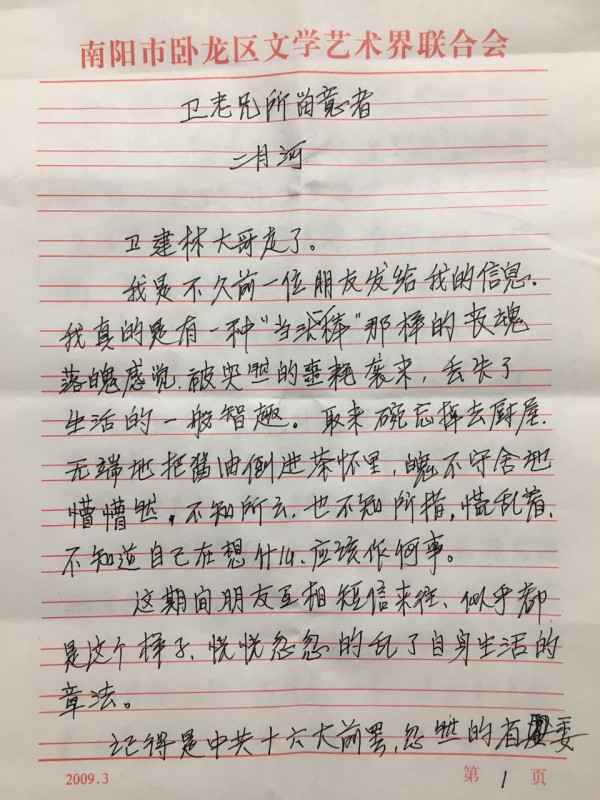 南阳市卧龙区文学艺术界联合会
卫老兄所留意者
二月河
卫建林大哥走了。
我是不久前一位朋友发给我的信息.
我真的是有一种“当头棒”那样的丧魂
落魄感觉.被突然的噩耗袭来，丢失了
生活的一般智趣。取来碗忘择去厨屋.
无端地把酱油倒进茶怀里，魄不守舍地
懵懵然，不知所云.也不知所措，慌乱着.
不知道自己在想什么.应该作何事。
这期间朋友互相短信来往、似乎都
是这个样子.恍恍忽忽的乱了自身生活的
章法。
记得是中共十六大前罢,忽然的省委
2009.3
第 1 页